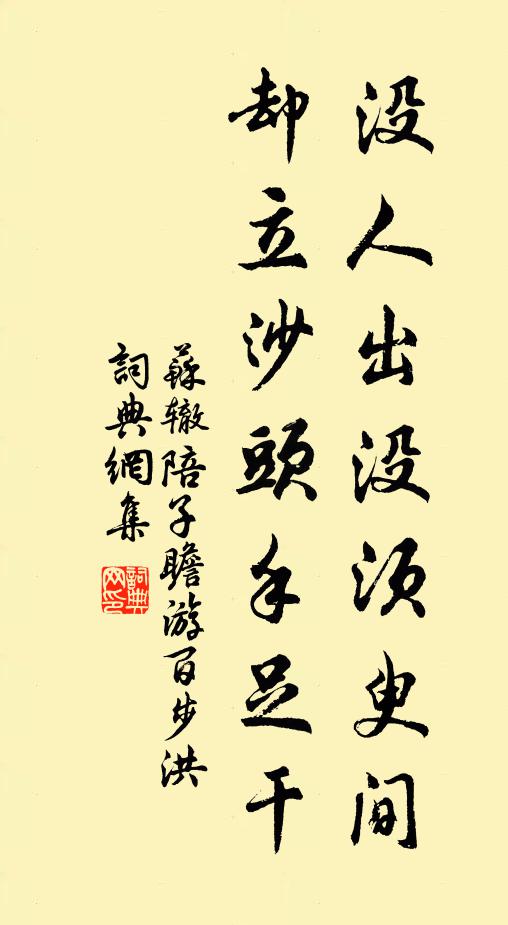 没人出没须臾间
却立沙頭手足干
蘇辙陪子瞻游百步洪
詞典網集
詞典网印